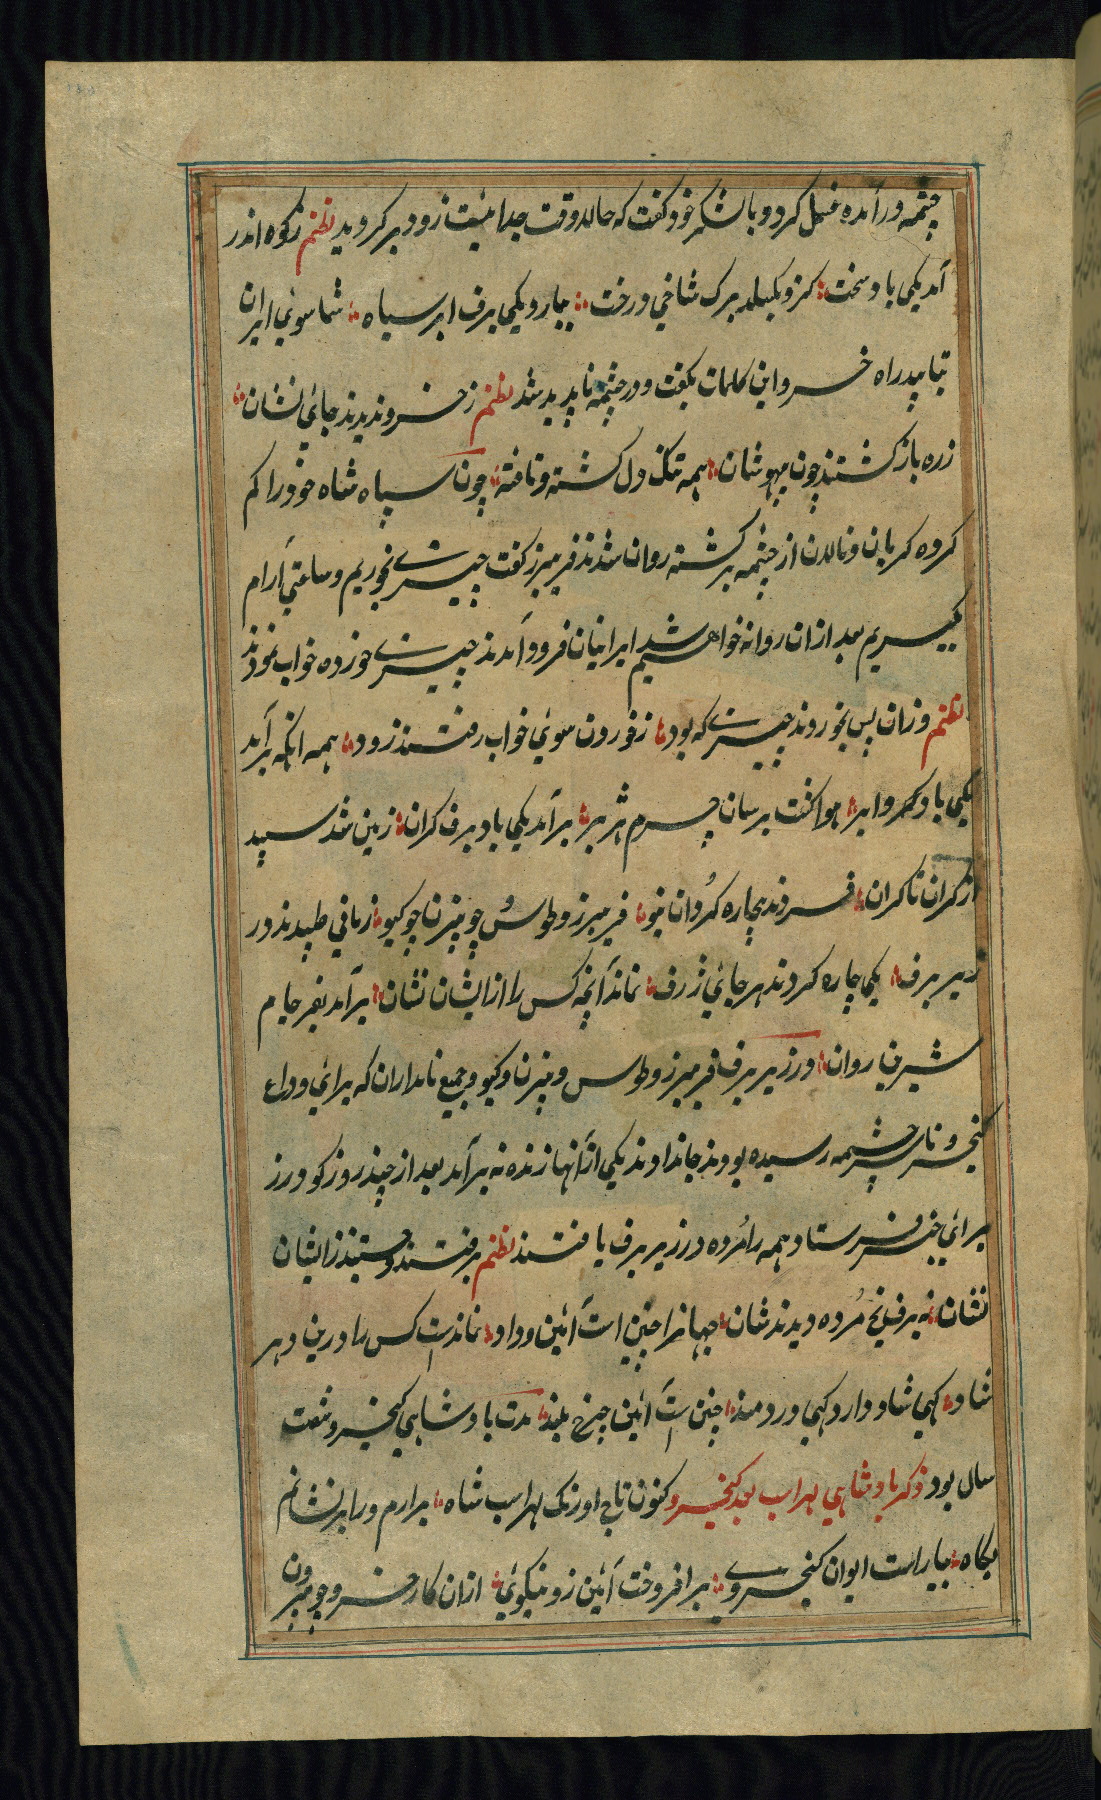 چشمه درآمده غسل کرد و بالشکر خود کفت که حالا وقت جدائیست زود برکردید نظم زکوه اندر
آمد یکی باد سخت کزو بکسلد برک شاخ درخت ببارد یکی برف ابر سیاه شما سوی ایران
نیابید راه خسرو این کلمات بکفت و در چشمه ناپدید شد نظم زخسرو ندیدند جائی نشان
زره بازکشتند چون بیهوشان همه تنک دل کشته و تافته چون سپاه شاه خود را کم
کرده کریان و نالان از چشمه برکشته روان شدند فریبرز کفت چیزی بخوریم و ساعتی آرام
بکیریم بعد ازان روانه خواهیم شد ایرانیان فرود آمدند چیزی خورده خواب نمودند
نظم وزان پس بخوردند چیزی که بود زخوردن سوی خواب رفتند زود همه آنکه برآمد
یکی باد و ابر هوا کفت برسان چرم هژبر برآمد یکی باد برف کران زمین شد سپید
از کران تا کران فروماند بیچاره کردان نیو فریبرز و طوس چو بیژن چو کیو زمانی طپیدند در
زیر برف یکی چاره کردند هر جائی ژرف نماند آنچه کس را از ایشان نشان برآمد بفرجام
شیرین روان در زیر برف فریبرز و طوس و بیژن و کیو و جمیع نامداران که برای وداع
کیخسرو تا سر چشمه رسیده بودند جان دادند یکی از آنها زنده نه برآمد بعد از چند روز کودرز
برای خبر فرستاد همه را مرده در زیر برف یافتند نظم برفتند و جستند زایشان
نشان نه برف یخ مرده دیدند شان جهانرا چنین است آئین و داد نماندست کس را درین دهر
شاد کهی شاد دارد کهی دردمند چنین است آئین چرخ بلند مدت بادشاهی کیخسرو شصت
سال بود ذکر بادشاهی لهراسب بعد کیخسرو کنون تاج اورنک لهراسب شاه برارم ورا برنشانم
بکاه بیاراست ایوان کیخسروی برافروخت آئین زو نیکوئی ازان کار خسرو چو بیرون